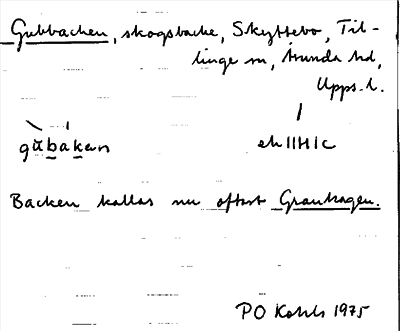 Gubbacken, skogsbacke, Skyttebo, Til-
linge sn, Åsunda hd,
Upps. l.
gu̇bakan
ek 11H1c
Backen kallas nu oftast Granhagen.
PO Kohls 1975